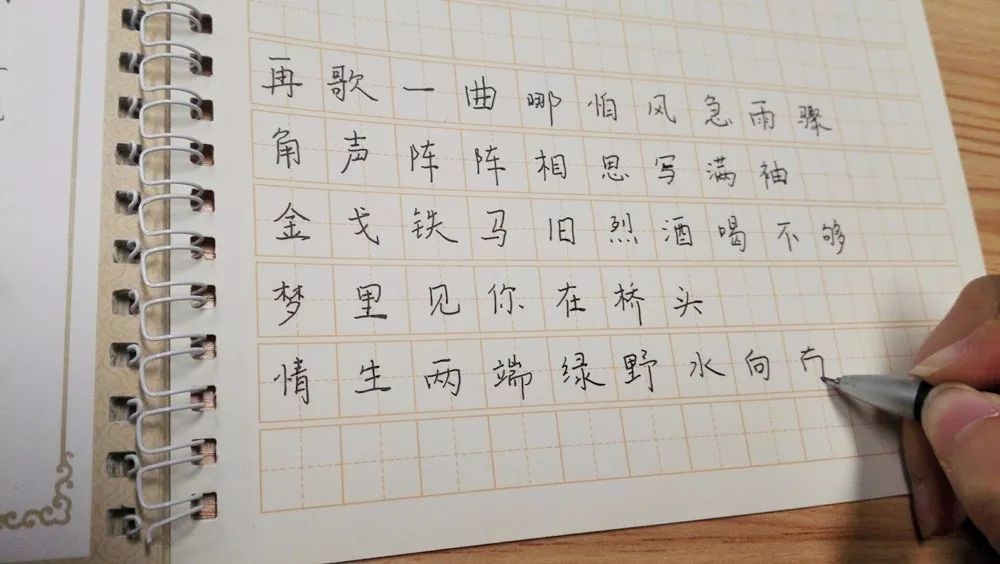 再歌一曲哪怕风急雨骤
角声阵阵相思写满袖
金戈铁马旧烈酒喝不够
梦里见你在桥头
情生两端绿野水向